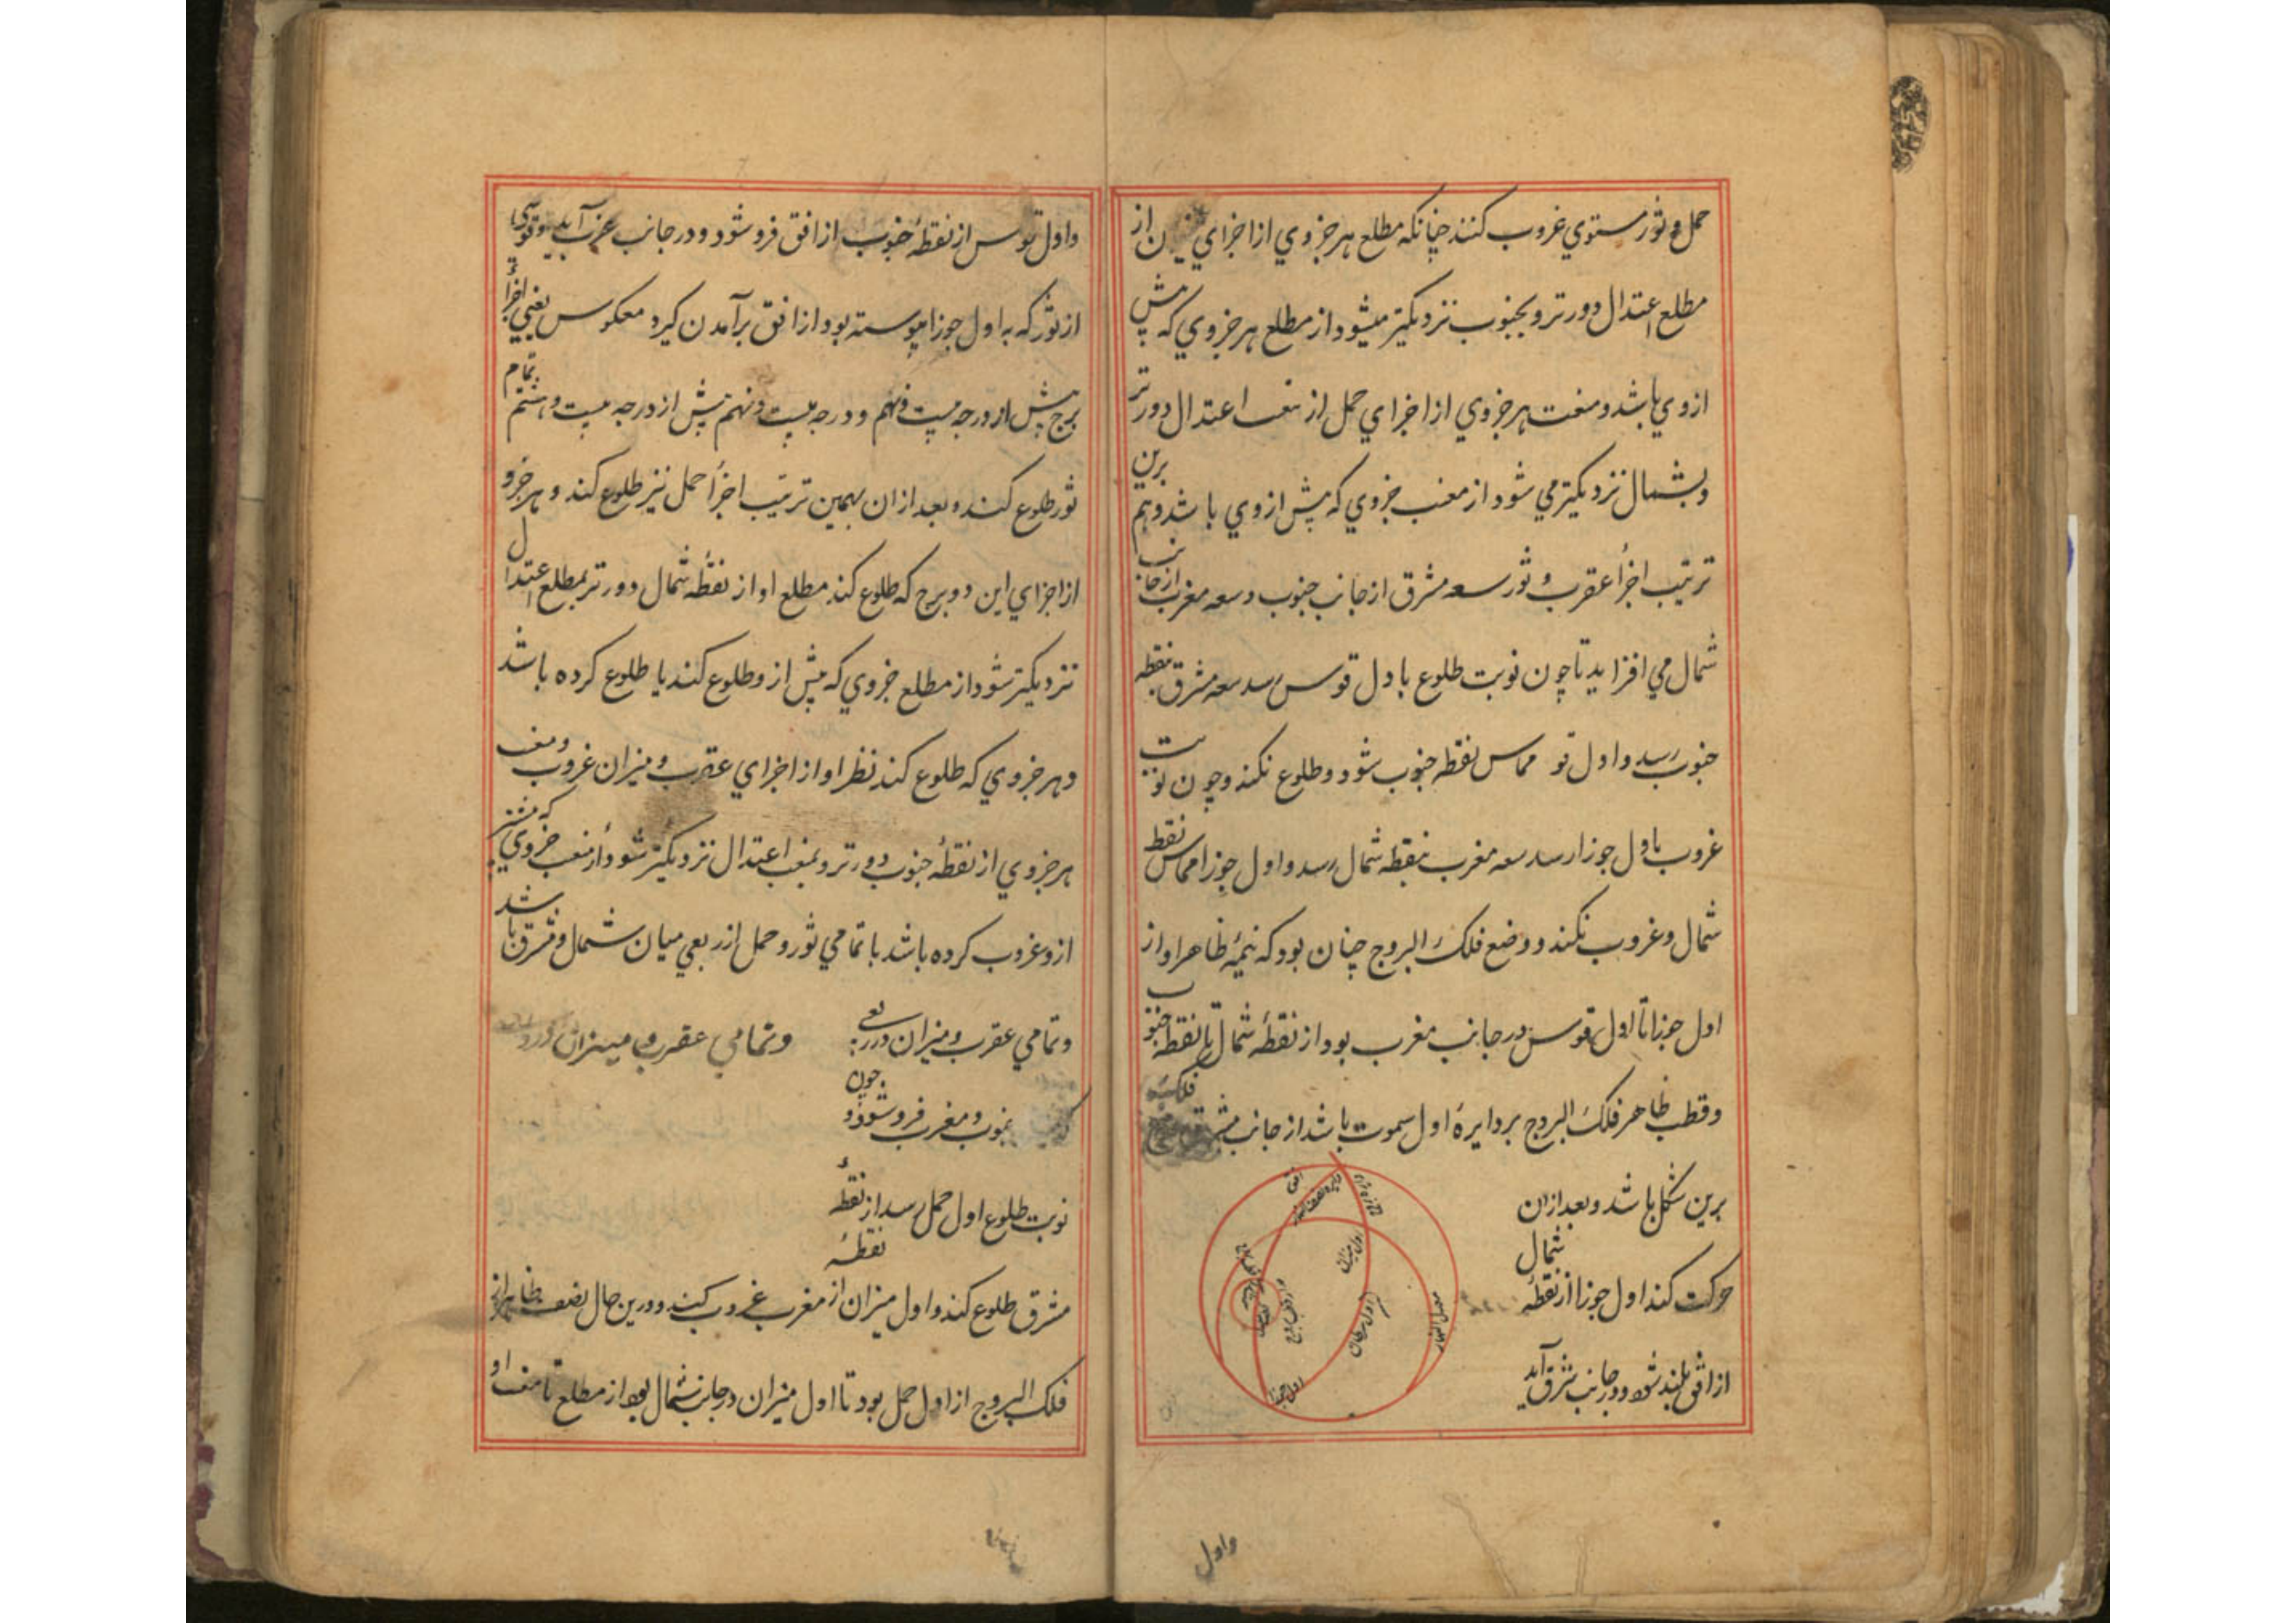 حمل و ثور مستوی غروب کنند چنانکه مطلع هر جزوي از اجزاي میزان از
مطلع اعتدال دورتر و بجنوب نزدیکتر میشود از مطلع هر جزوي که پیش
ازوي باشد و مغیب هر جزوي از اجزاي حمل از مغیب اعتدال دورتر
و بشمال نزدیکتر مي شود از مغیب جزوي که پیش ازوي باشد و هم برین
ترتیب اجزأ عقرب و ثور سعه مشرق از جانب جنوب و سعه مغرب از جانب
شمال مي افزاید تا چون نوبت طلوع باول قوس رسد سعه مشرق بنقطه
جنوب رسد و اول قو مماس نقطه جنوب شود و طلوع نکند و چون نوبت
غروب باول جوزا رسد سعه مغرب بنقطه شمال رسد و اول جوزا مماس نقطه
شمال و غروب نکند و وضع فلک البروج چنان بود که نیمهٔ ظاهر او از
اول جوزا تا اول قوس در جانب مغرب بود از نقطهٔ شمال تا نقطهٔ جنوب
و قطب ظاهر فلک البروج بر دایرهٔ اول سموت باشد از جانب مشرق فلک
برین شکل باشد و بعد ازان
حرکت کند اول جوزا از نقطهٔ شمال
از افق بلند شود و در جانب شرق آید
افق
دایره نصف النهار
اول میزان
اول سرطان
اول جوزا
واول
و اول قوس از نقطهٔ جنوب از افق فرو شود و در جانب غرب آید و قوسی
از ثور که به اول جوزا پیوسته بود از افق برآمدن گیرد معکوس یعني اجزأ
برج پیش از درجه بیست و نهم و درجه بیست و نهم پیش از درجه بیست و هشتم تمام
ثور طلوع کند و بعد ازان بهمین ترتیب اجزأ حمل نیز طلوع کند و هر جزو
از اجزاي این دو برج که طلوع کند مطلع او از نقطهٔ شمال دورتر بمطلع اعتدال
نزدیکتر شود از مطلع جزوي که پیش از و طلوع کند یا طلوع کرده باشد
و هر جزوي که طلوع کند نظر او از اجزاي عقرب و میزان غروب و مغیب
هر جزوي از نقطهٔ جنوب دورتر و بمغیب اعتدال نزدیکتر شود از مغیب جزوي که پیشتر
ازو غروب کرده باشد با تمامي ثور و حمل از ربعي میان شمال و مشرق باشد
و تمامي عقرب و میزان در ربعي و تمامي عقرب و میزان
جنوب و مغرب فرو شود و چون
نوبت طلوع اول حمل رسد از نقطهٔ
مشرق طلوع کند و اول میزان از نقطهٔ مغرب غروب کند و درین حال نصف ظاهر از
فلک البروج از اول حمل بود تا اول میزان در جانب شمال بود از مطلع تا مغیب او